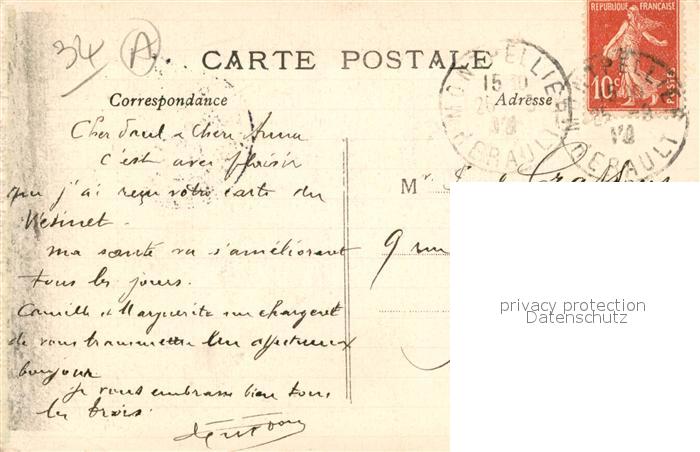 34 A
REPUBLIQUE FRANÇAISE
10c POSTES
CARTE POSTALE
MONTPELLIER
15 30
25
HERAULT
MONTPELLIER
25
HERAULT
Correspondance
Adresse
Cher Paul & Chère Anna
C'est avec plaisir
que j'ai reçu votre carte du
Vésinet.
ma santé va s'améliorant
tous les jours.
Camille et Marguerite me chargent
de vous transmettre leur affectueux
bonjour
je vous embrasse bien tous
les trois.
Mr.
9 rue
privacy protection
Datenschutz